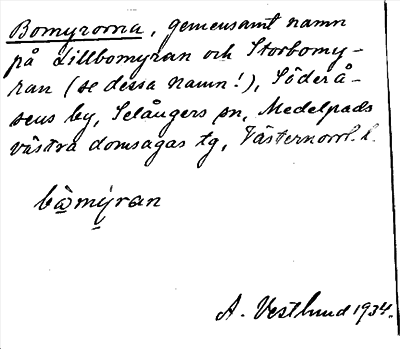 Bomyrorna, gemensamt namn
på Lillbomyran och Storbomy-
ran (se dessa namn!), Söderå-
sens by, Selångers sn, Medelpads
västra domsagas tg, Västernorrl. l.
bàmýran
A. Vestlund 1934.